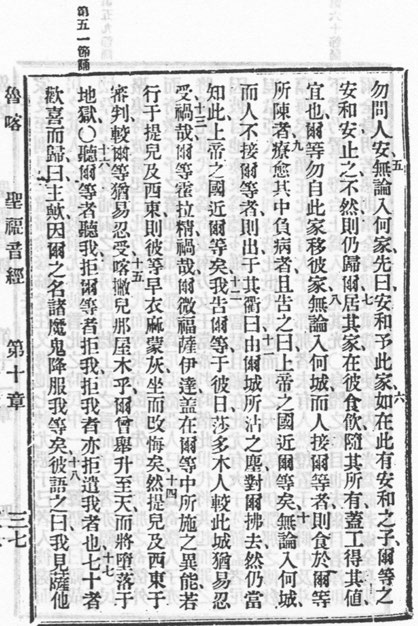 勿問人安無論入何家先曰安和予此家如在此有安和之子爾等之
五
六
安和安止之不然則仍歸爾居其家在彼食飲隨其所有蓋工得其値
七
宜也爾等勿自此家移彼家無論入何城而人接爾等者則食於爾等
八
所陳者療愈其中負病者且告之曰上帝之國近爾等矣無論入何城
九
十
而人不接爾等者則出于其衢曰由爾城所沾之塵對爾拂去然仍當
十一
知此上帝之國近爾等矣我告爾等于彼日莎多木人較此城猶易忍
十二
受禍哉爾等霍拉精禍哉爾微福薩伊達蓋在爾等中所施之異能若
十三
行于提兒及西東則彼等早衣麻蒙灰坐而改悔矣然提兒及西東于
十四
審判較爾等猶易忍受喀撇兒那屋木乎爾曾舉升至天而將墮落于
十五
地獄〇聽爾等者聽我拒爾等者拒我拒我者亦拒遣我者也七十者
十六
十七
歡喜而歸曰主歟因爾之名諸魔鬼降服我等矣彼語之曰我見薩他
十八
第五一節誦
魯喀
聖福音經
第十章
三七